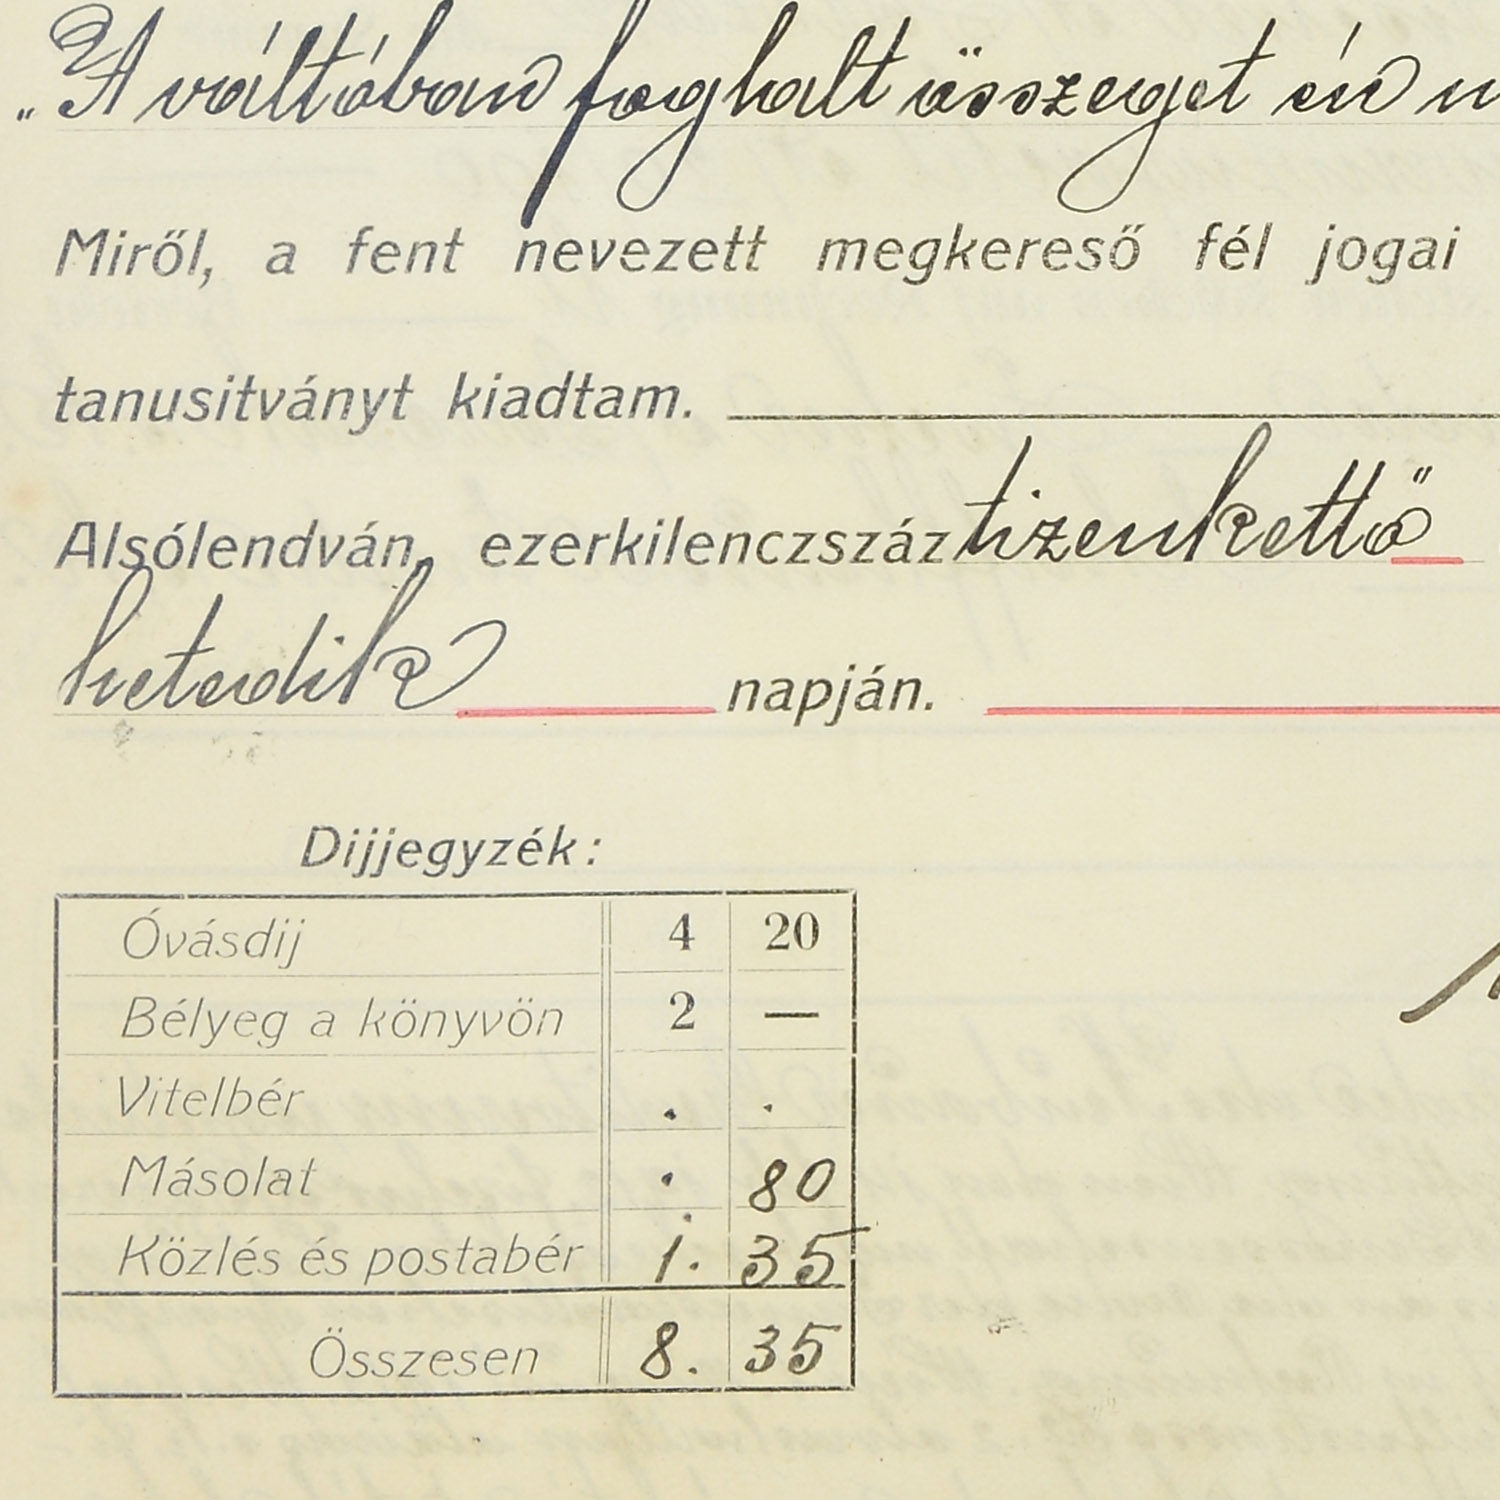 „A váltóban foghalt összeget én
Miről, a fent nevezett megkereső fél jogai
tanusitványt kiadtam.
Alsólendván, ezerkilenczszáz tizenkettő
hetedik napján.
Dijjegyzék:
Óvásdij 4 20
Bélyeg a könyvön 2 —
Vitelbér . .
Másolat . 80
Közlés és postabér 1. 35
Összesen 8. 35